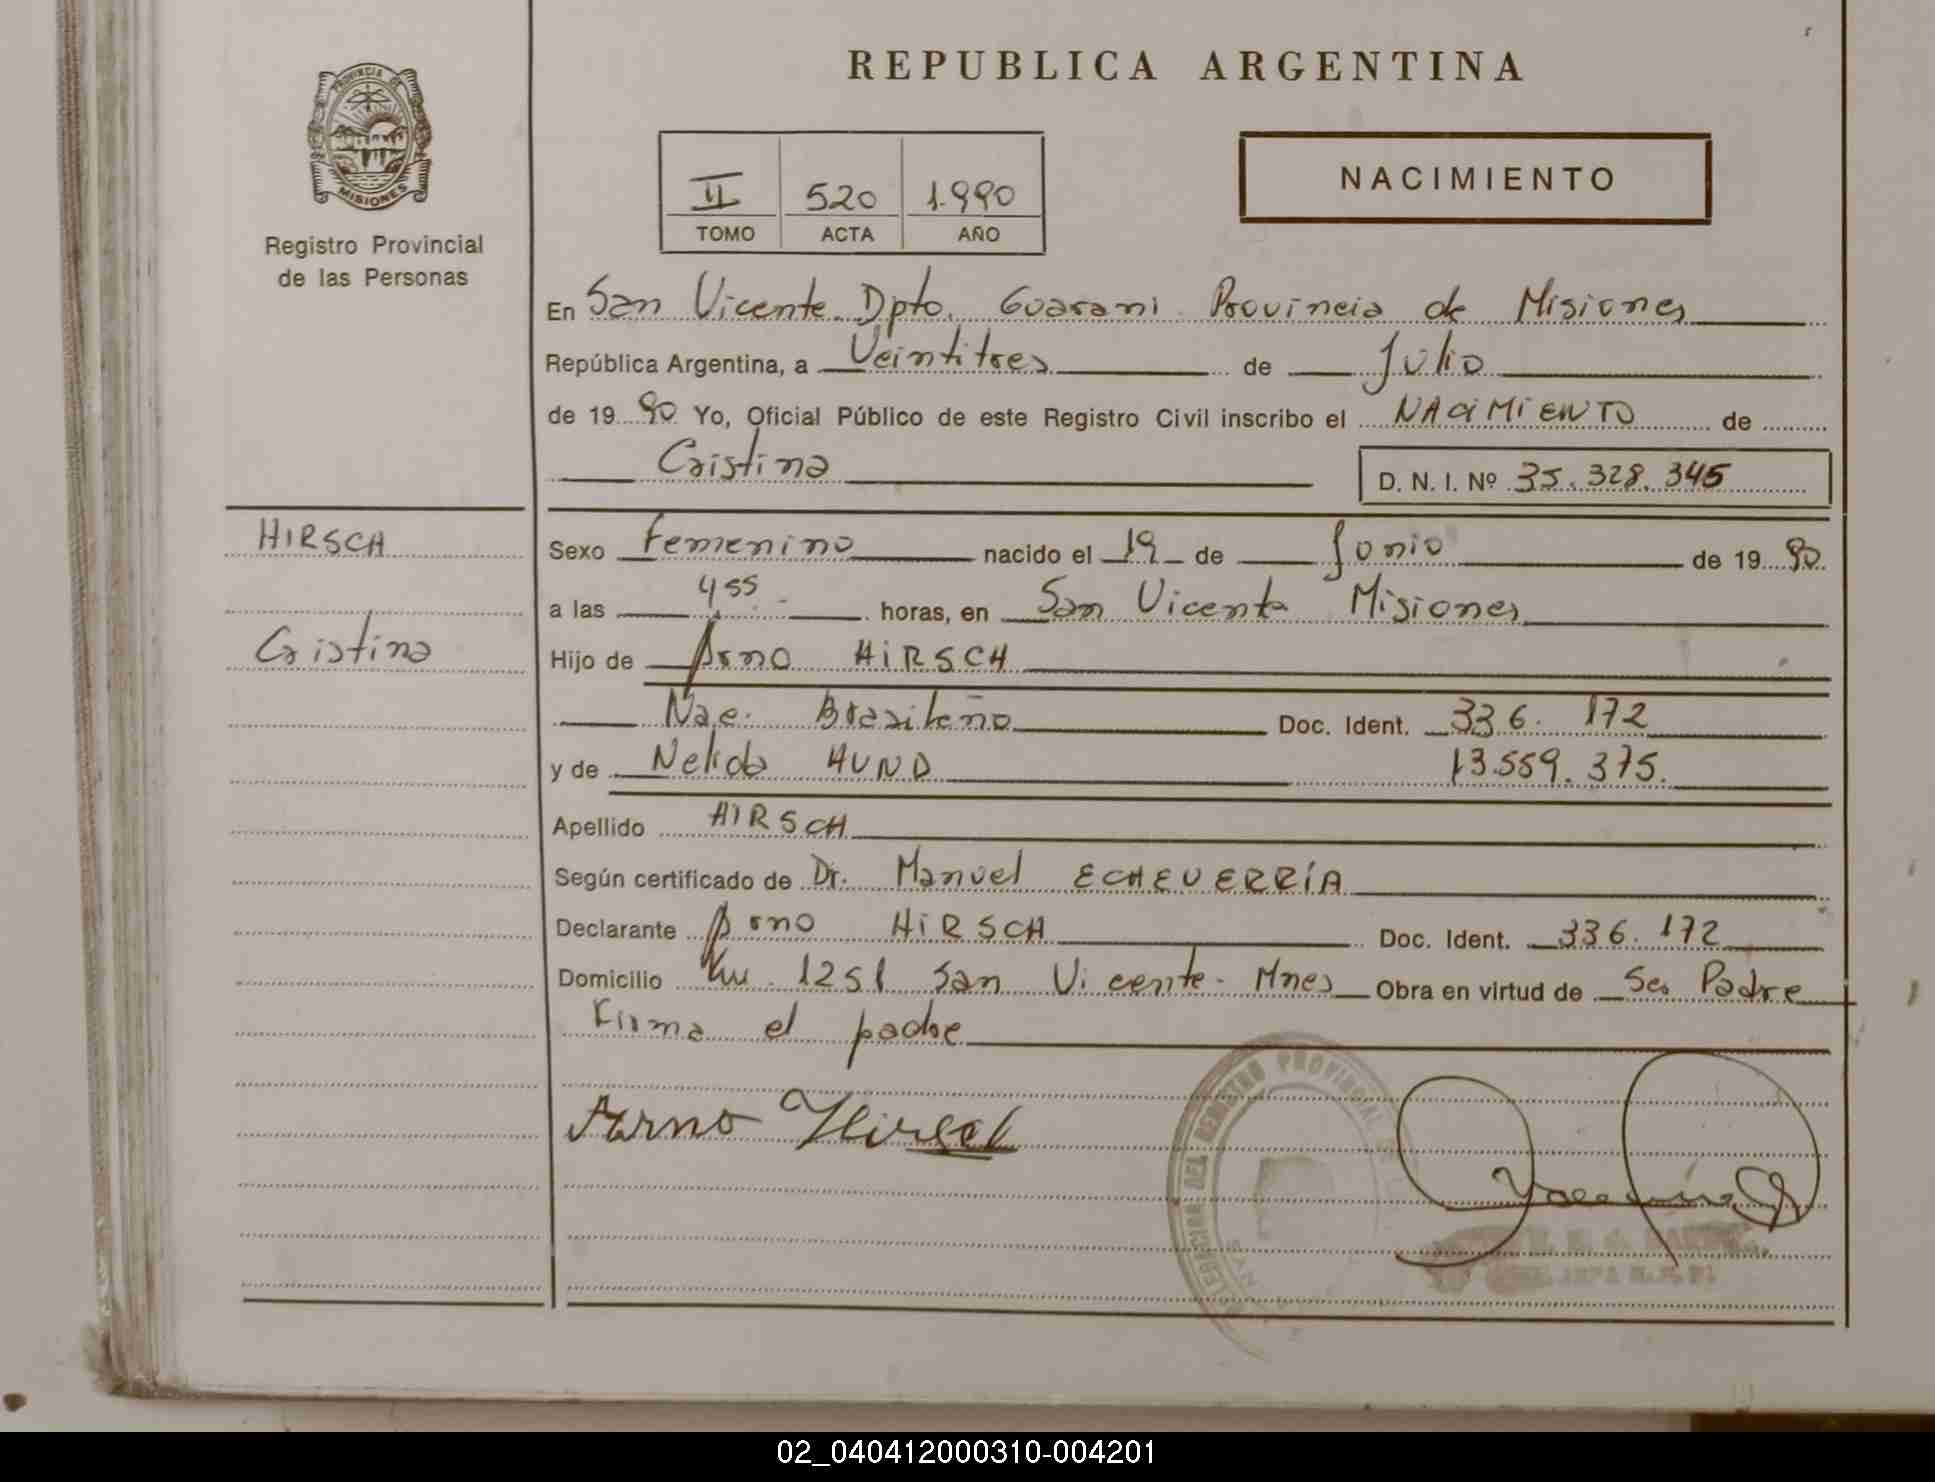 REPUBLICA ARGENTINA
PROVINCIA DE
MISIONES
Registro Provincial
de las Personas
II 520 1.990
TOMO ACTA AÑO
NACIMIENTO
En San Vicente Dpto. Guarani Provincia de Misiones
República Argentina, a Veintitres de Julio
de 19 90 Yo, Oficial Público de este Registro Civil inscribo el NACIMIENTO de
Cristina D. N. I. Nº 35.328.345
HIRSCH
Cristina
Sexo Femenino nacido el 19 de Junio de 19 90
a las 4 55 horas, en San Vicente Misiones
Hijo de Arno HIRSCH
Nac. Brasileño Doc. Ident. 336.172
y de Nelida HUND 13.559.375.
Apellido HIRSCH
Según certificado de Dr. Manuel ECHEVERRÍA
Declarante Arno HIRSCH Doc. Ident. 336.172
Domicilio Km. 1251 San Vicente - Mnes Obra en virtud de Ser Padre
Firma el padre
Arno Hirsch
DELEGACION DEL REGISTRO PROVINCIAL
02_040412000310-004201